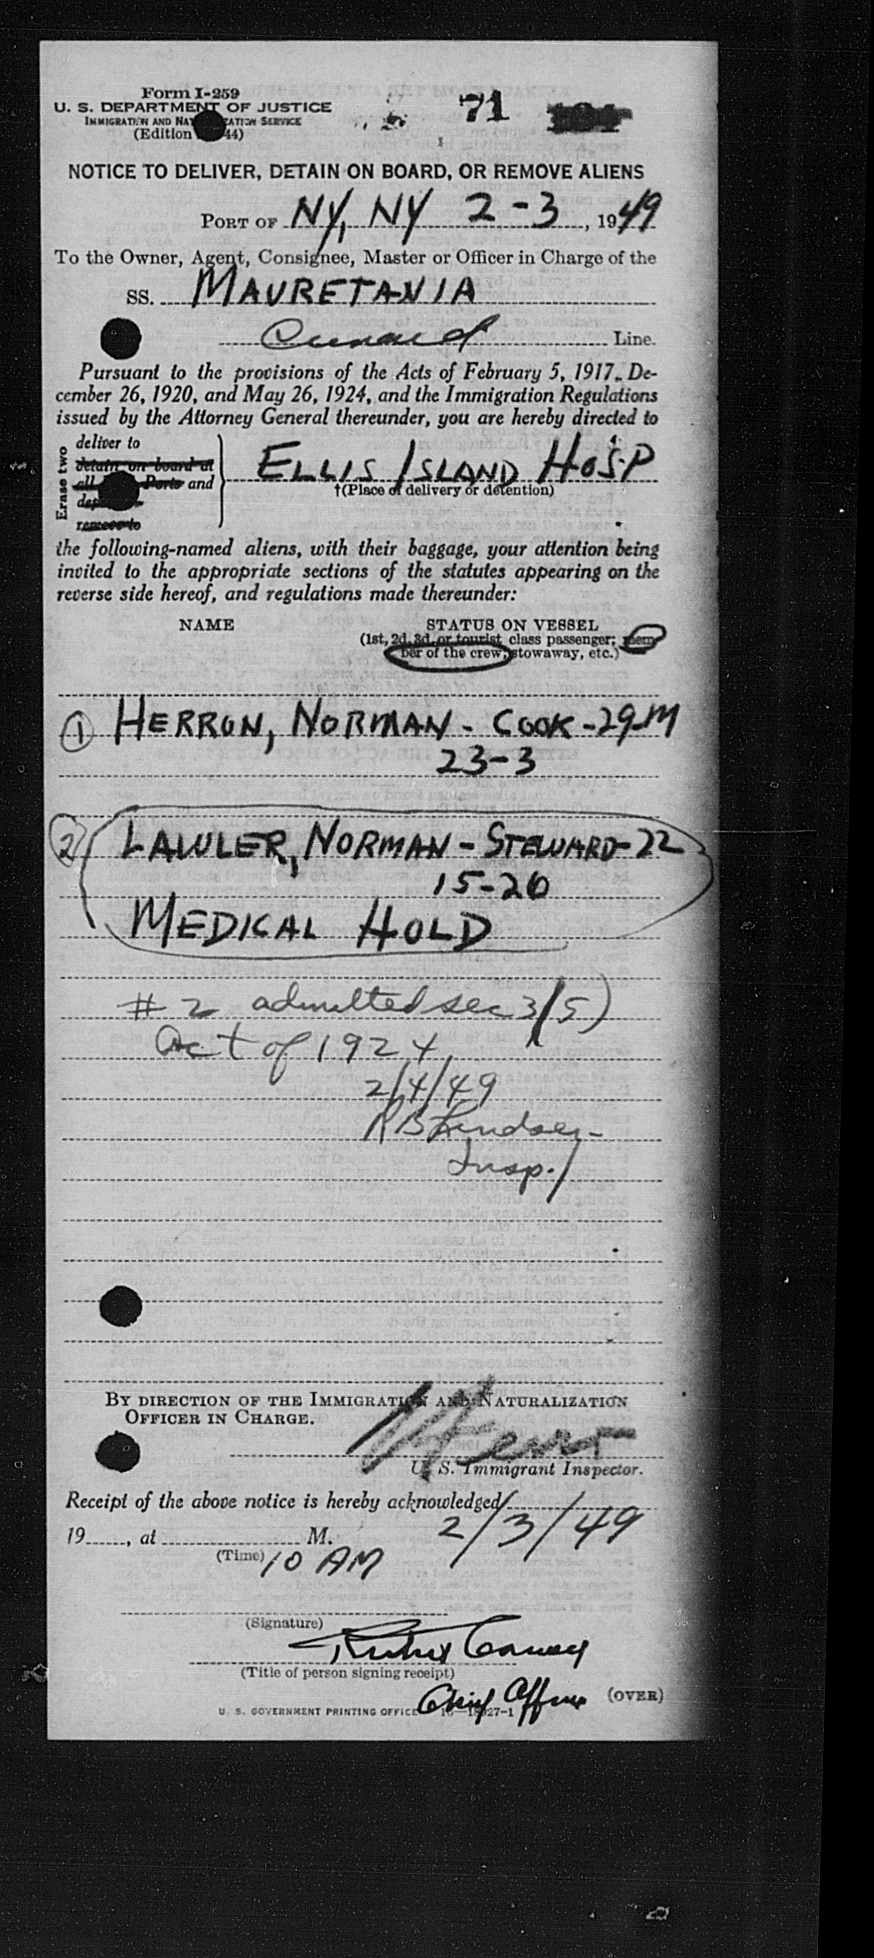 Form I-259
U. S. DEPARTMENT OF JUSTICE
IMMIGRATION AND NATURALIZATION SERVICE
(Edition 44)
71
NOTICE TO DELIVER, DETAIN ON BOARD, OR REMOVE ALIENS
PORT OF NY, NY 2-3, 1949
To the Owner, Agent, Consignee, Master or Officer in Charge of the
SS. MAURETANIA
Cunard Line.
Pursuant to the provisions of the Acts of February 5, 1917, De-
cember 26, 1920, and May 26, 1924, and the Immigration Regulations
issued by the Attorney General thereunder, you are hereby directed to
Erase two
deliver to
detain on board at
all Ports and
remove to
ELLIS ISLAND HOSP
†(Place of delivery or detention)
the following-named aliens, with their baggage, your attention being
invited to the appropriate sections of the statutes appearing on the
reverse side hereof, and regulations made thereunder:
NAME STATUS ON VESSEL
(1st, 2d, 3d, or tourist class passenger; mem-
ber of the crew, stowaway, etc.)
1 HERRON, NORMAN - COOK - 29-M
23-3
2 LAWLER, NORMAN - STEWARD - 22
15-26
MEDICAL HOLD
# 2 admitted sec 3(5)
Act of 1924
2/4/49
R B Lindsey
Insp.
BY DIRECTION OF THE IMMIGRATION AND NATURALIZATION
OFFICER IN CHARGE.
U. S. Immigrant Inspector.
Receipt of the above notice is hereby acknowledged
19, at M. 2/3/49
(Time) 10 AM
(Signature)
(Title of person signing receipt)
Chief Officer (OVER)
U. S. GOVERNMENT PRINTING OFFICE 27-1